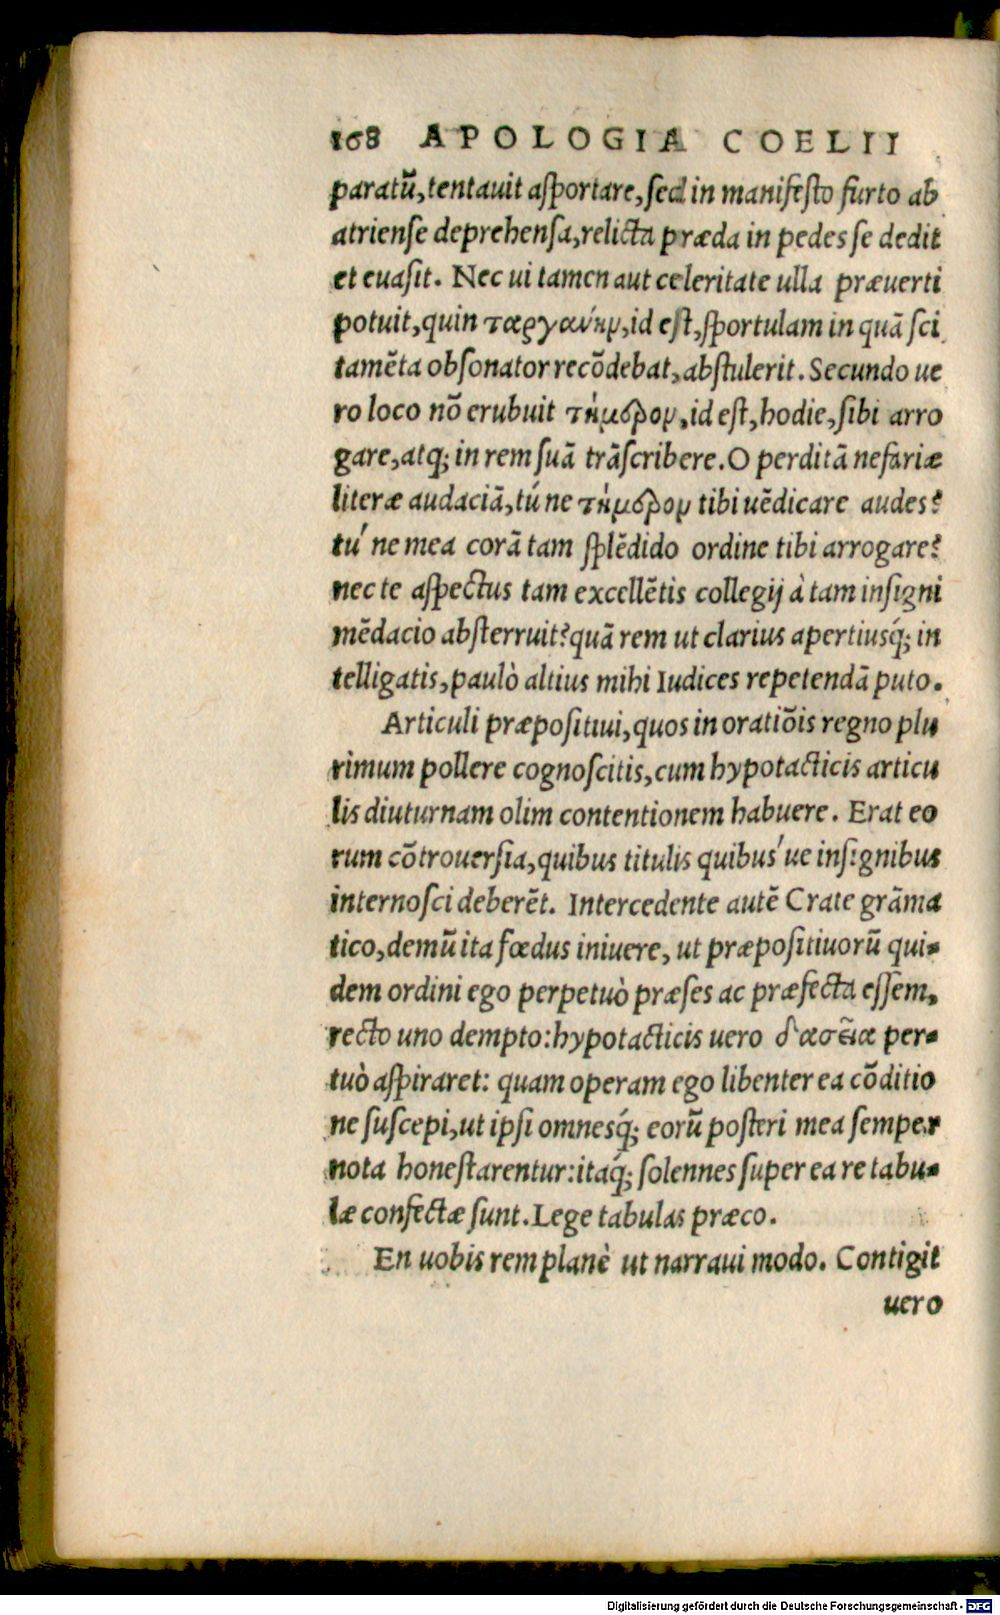 168 APOLOGIA COELII
paratū, tentauit asportare, sed in manifesto furto ab
atriense deprehensa, relicta præda in pedes se dedit
et euasit. Nec ui tamen aut celeritate ulla præuerti
potuit, quin ταργαύην, id est, sportulam in quā sci
tamēta obsonator recōdebat, abstulerit. Secundo ue
ro loco nō erubuit τήμερον, id est, hodie, sibi arro
gare, atq; in rem suā trāscribere. O perditā nefariæ
literæ audaciā, tú ne τήμερον tibi uēdicare audes?
tú ne mea corā tam splēdido ordine tibi arrogare?
nec te aspectus tam excellētis collegij à tam insigni
mēdacio absterruit? quā rem ut clarius apertiusq́; in
telligatis, paulò altius mihi Iudices repetendā puto.
Articuli præpositiui, quos in oratiōis regno plu
rimum pollere cognoscitis, cum hypotacticis articu
lis diuturnam olim contentionem habuere. Erat eo
rum cōtrouersia, quibus titulis quibus´ue insignibus
internosci deberēt. Intercedente autē Crate grāma
tico, demū ita fœdus iniuere, ut præpositiuorū qui-
dem ordini ego perpetuò præses ac præfecta essem,
recto uno dempto: hypotacticis uero δασεῖα per-
tuò aspiraret: quam operam ego libenter ea cōditio
ne suscepi, ut ipsi omnesq́; eorū posteri mea semper
nota honestarentur: itaq́; solennes super ea re tabu-
læ confectæ sunt. Lege tabulas præco.
En uobis rem planè ut narraui modo. Contigit
uero
Digitalisierung gefördert durch die Deutsche Forschungsgemeinschaft - DFG